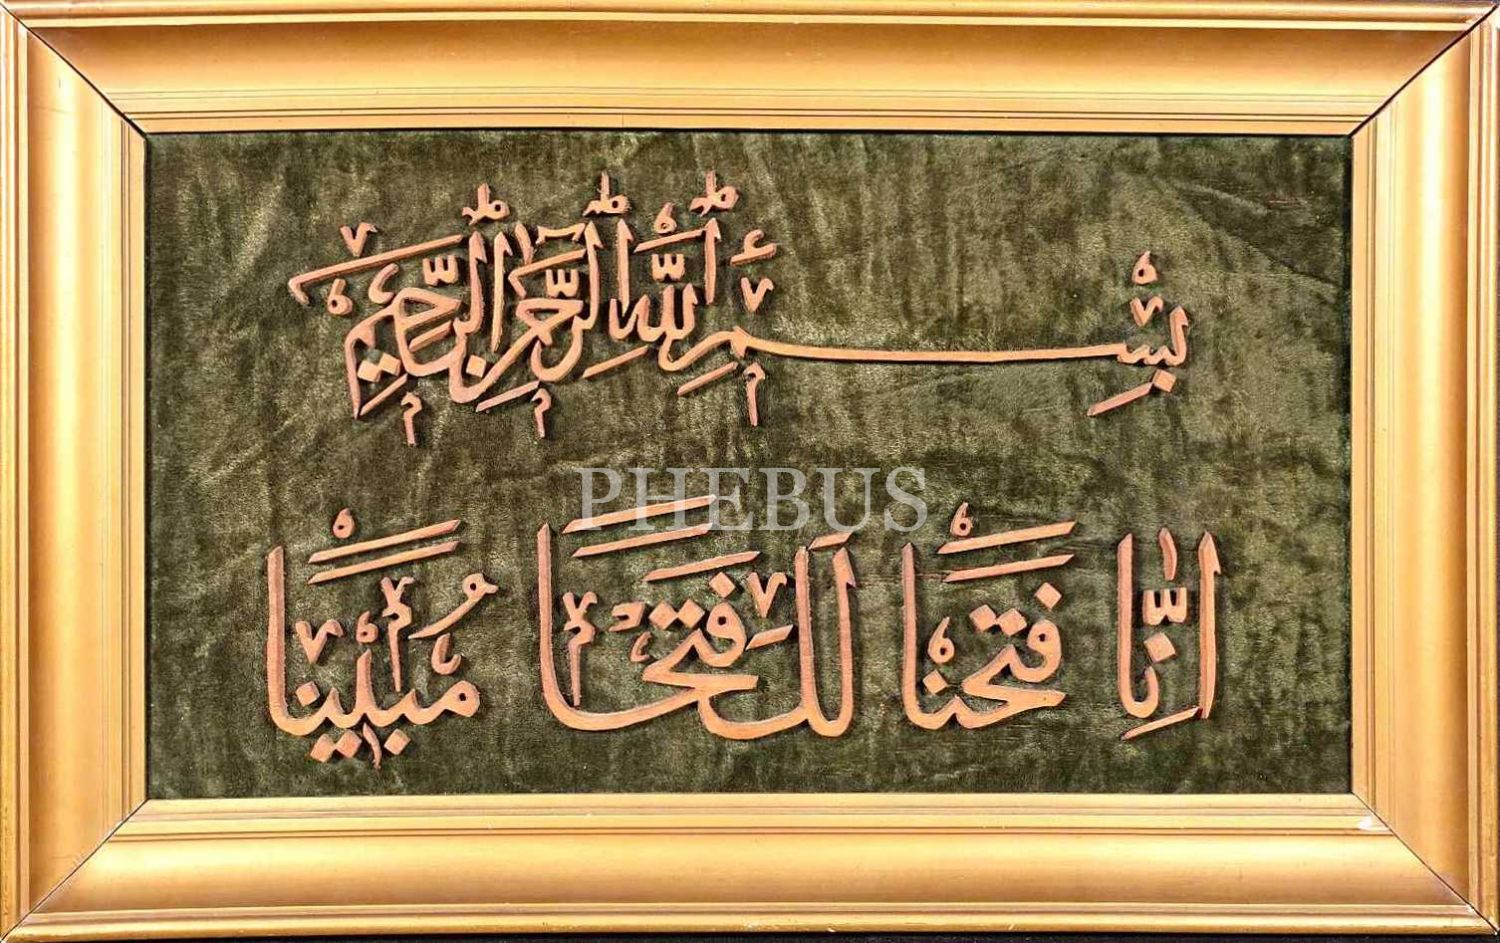 بِسْمِ اللّٰهِ الرَّحْمٰنِ الرَّحِيمِ
PHEBUS
اِنَّا فَتَحْنَا لَكَ فَتْحًا مُبِينًا